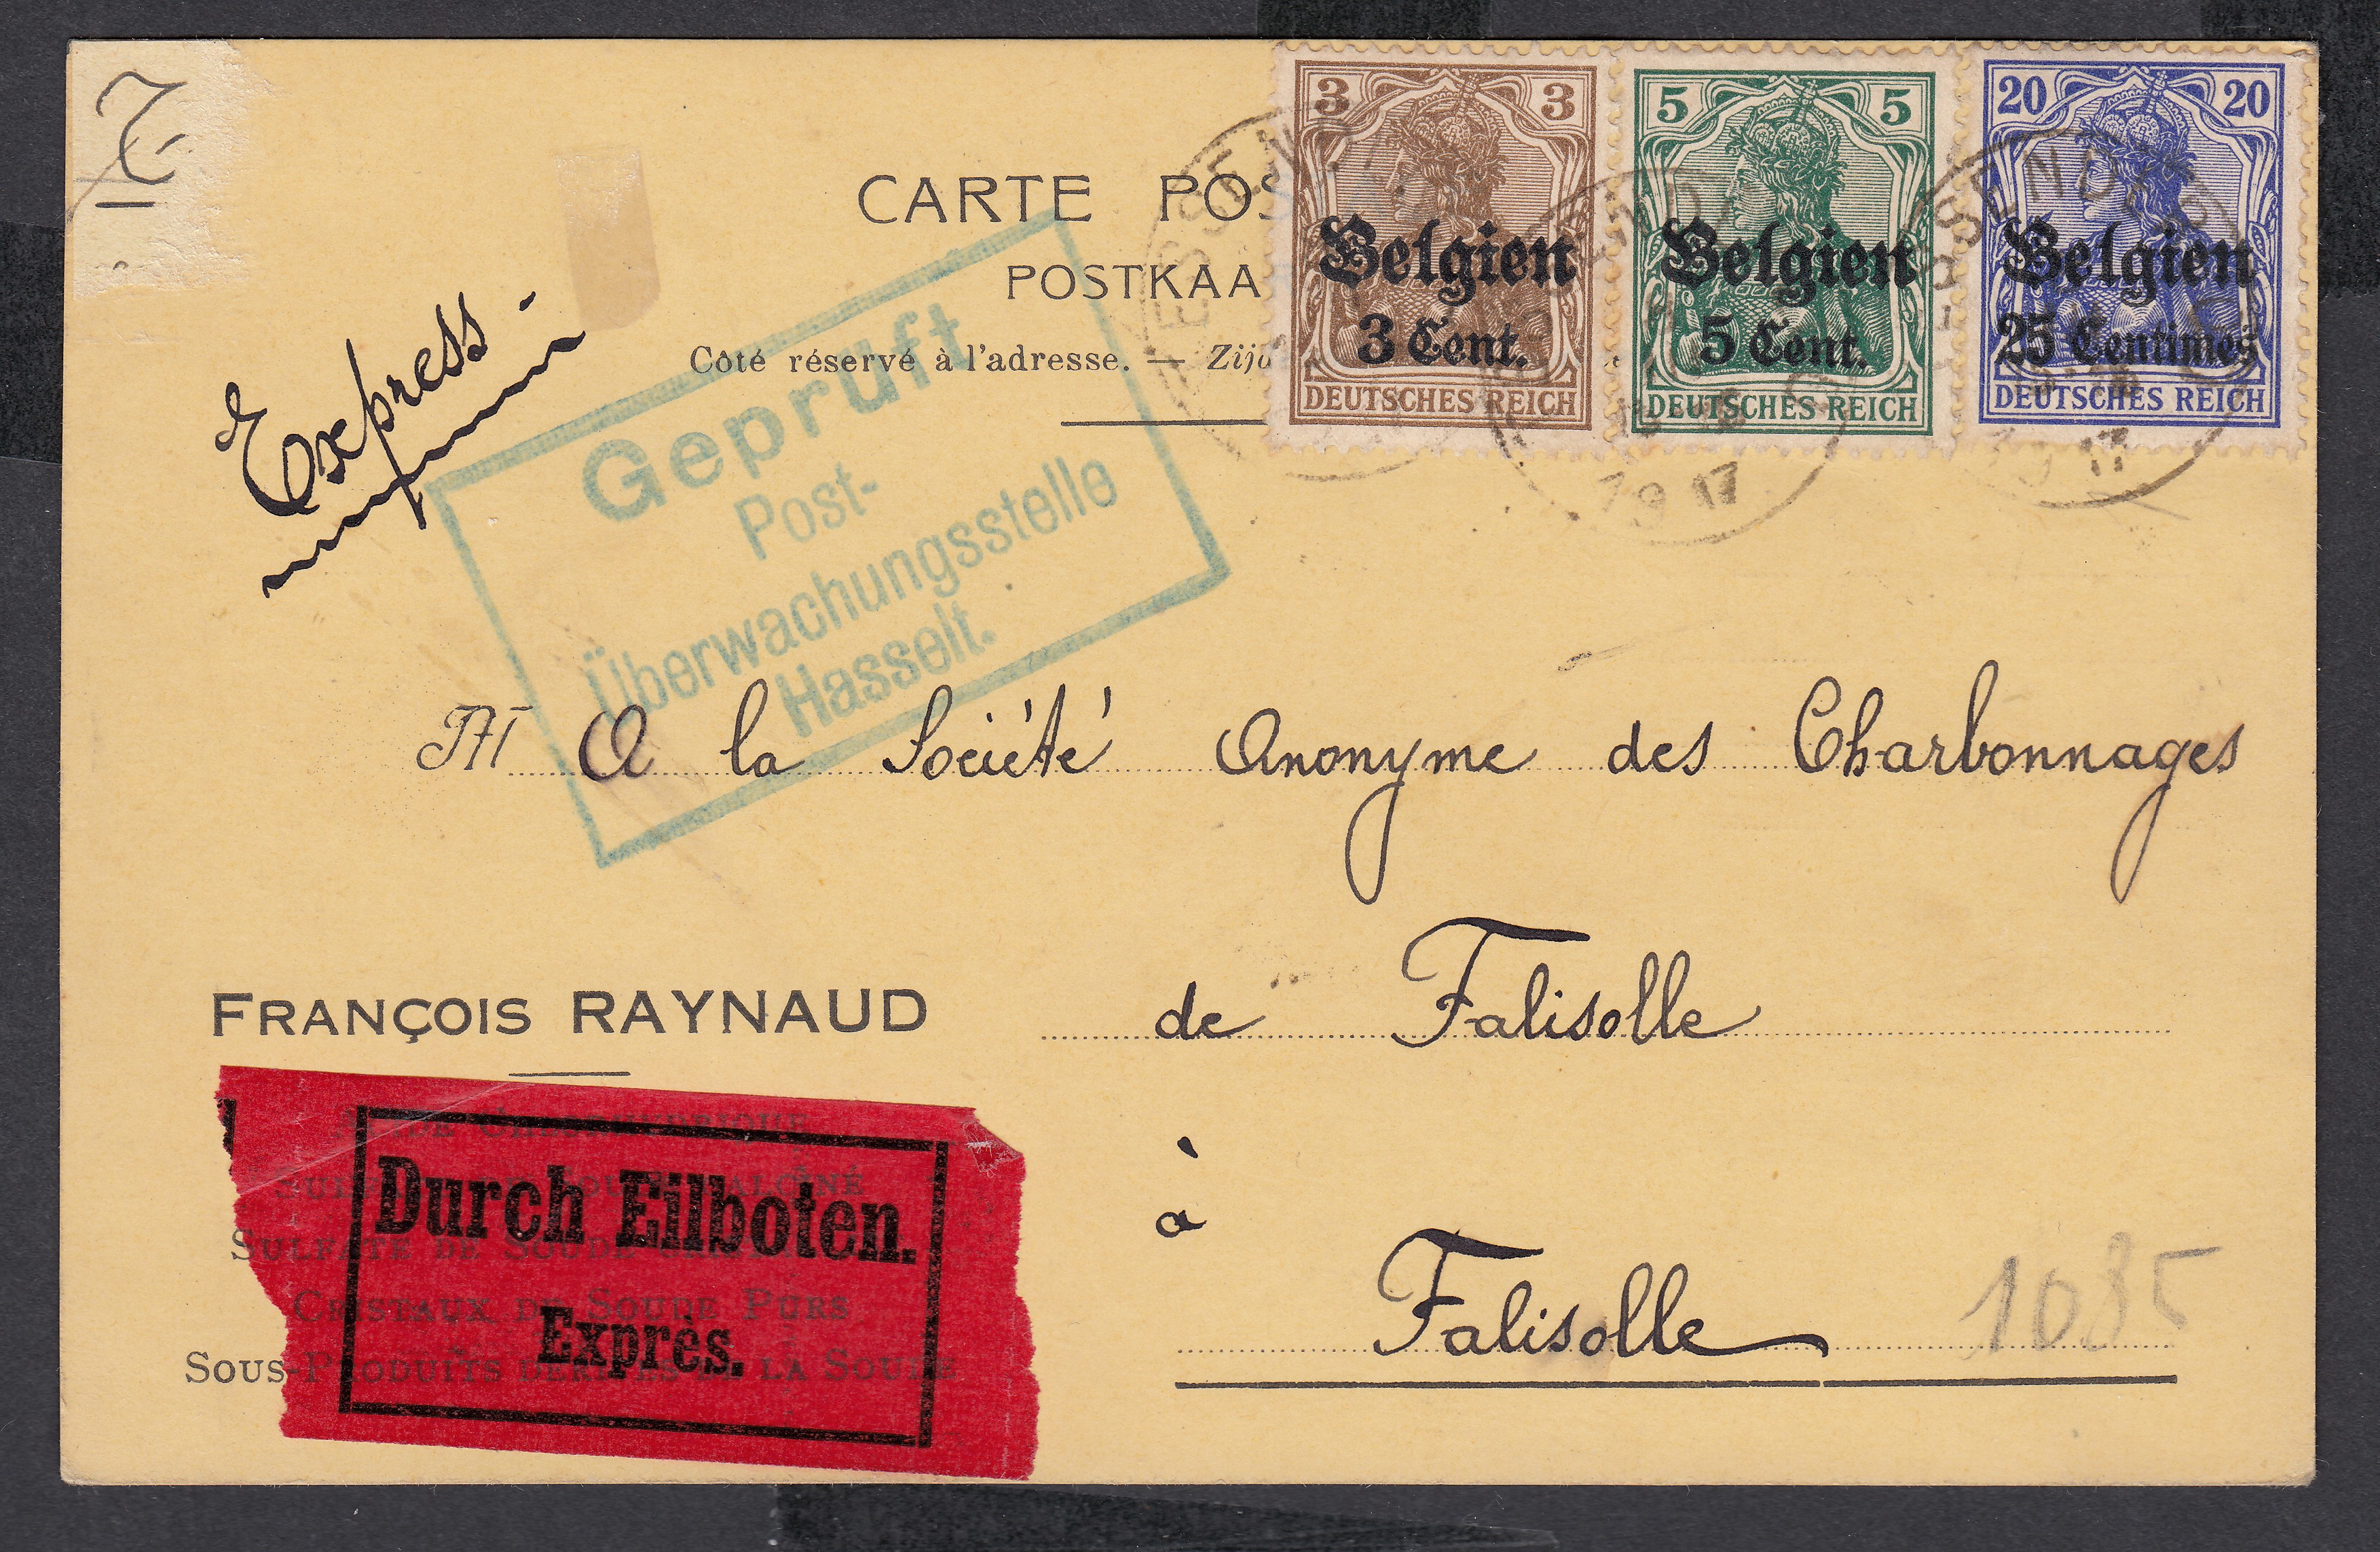 CARTE POS
POSTKAA
Côté réservé à l'adresse. — Zijd
3 3
Belgien
3 Cent.
DEUTSCHES REICH
5 5
Belgien
5 Cent.
DEUTSCHES REICH
20 20
Belgien
25 Centimes
DEUTSCHES REICH
17
Express -
Geprüft
Post-
Überwachungsstelle
Hasselt.
M A la Société Anonyme des Charbonnages
de Falisolle
à
Falisolle
1035
FRANÇOIS RAYNAUD
SULFATE DE SOUDE
CRISTAUX DE SOUDE PURS
SOUS-PRODUITS DÉRIVÉS DE LA SOUDE
Durch Eilboten.
Exprès.